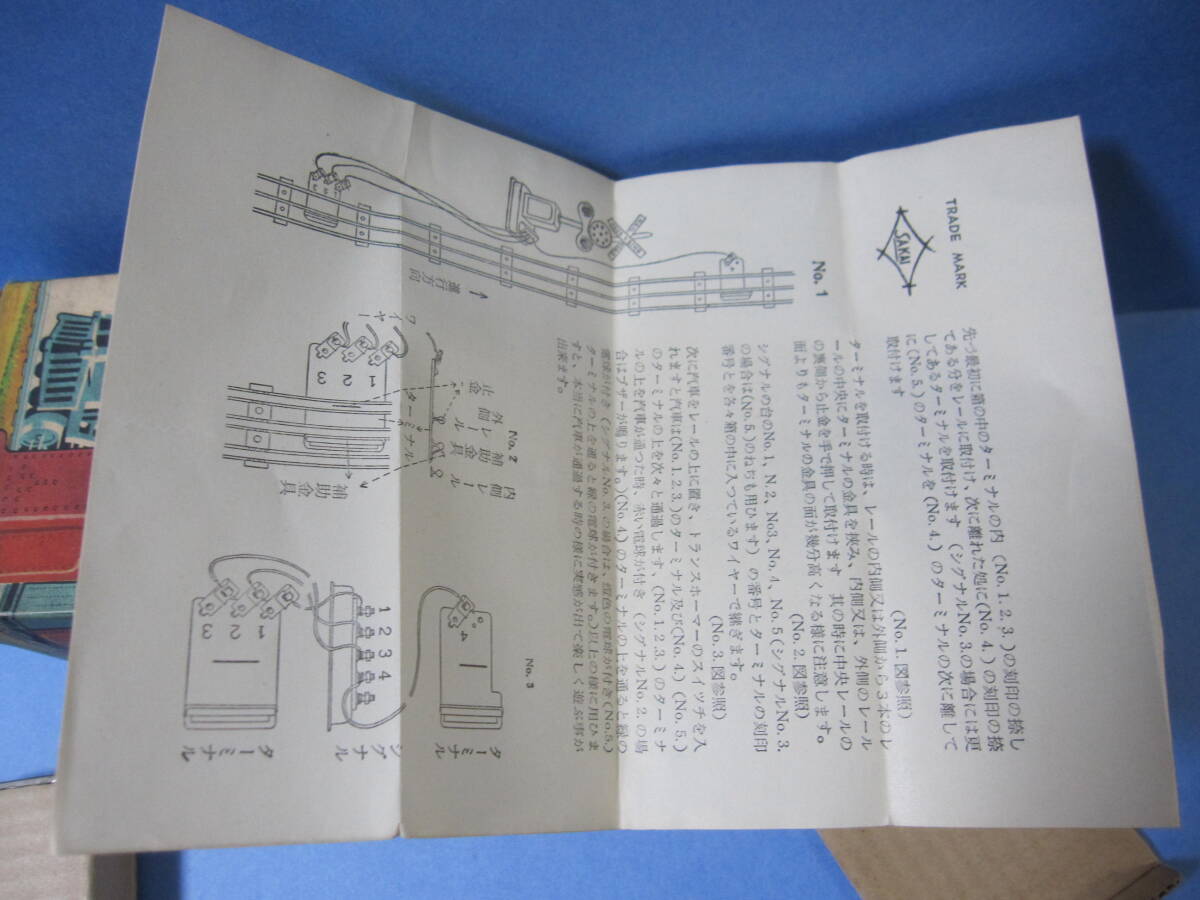 TRADE MARK
SAKAI
No. 1
先づ最初に箱の中のターミナルの内 (No. 1. 2. 3.) の刻印の捺し
てある分をレールに取付け、次に離れた処に(No. 4.) の刻印の捺
してあるターミナルを取付けます (シグナルNo. 3.の場合には更
に(No. 5.)のターミナルを (No. 4.) のターミナルの次に離して
取付けます
(No. 1. 図参照)
ターミナルを取付ける時は、レールの内側又は外側から3本のレ
ールの中央にターミナルの金具を挟み、内側又は、外側のレール
の裏側から止金を手で押して取付けます 其の時に中央レールの
面よりもターミナルの金具の面が幾分高くなる様に注意します。
(No. 2. 図参照)
シグナルの台のNo. 1、N. 2、No3、No. 4、No. 5 (シグナルNo. 3.
の場合は(No. 5.)のねぢも用ひます) の番号とターミナルの刻印
番号とを各々箱の中に入つているワイヤーで継ぎます。
(No. 3. 図参照)
次に汽車をレールの上に置き、トランスホーマーのスイッチを入
れますと汽車は(No. 1. 2. 3.)のターミナル及び(No. 4.) (No. 5.)
のターミナルの上を次々と通過します、(No. 1. 2. 3.) のターミナ
ルの上を汽車が通つた時、赤い電球が付き (シグナルNo. 2. の場
合はブザーが鳴ります。)(No. 4.) のターミナルの上を通ると緑の
電球が付き (シグナルNo. 3. の場合は、橙色の電球が付き(No. 5.)
ターミナルの上を通ると緑の電球が付きます。)以上の様に用ひま
すと、本当に汽車が通過する時の様に実感が出て楽しく遊ぶ事が
出来ます。
進行方向
1 2 3
No. 2
ワイヤー
1 2 3
止金
外側レール
ターミナル
補助金具
内側レール
補助金具
No. 3
4
ターミナル
1 2 3 4
シグナル
1 2 3
ターミナル